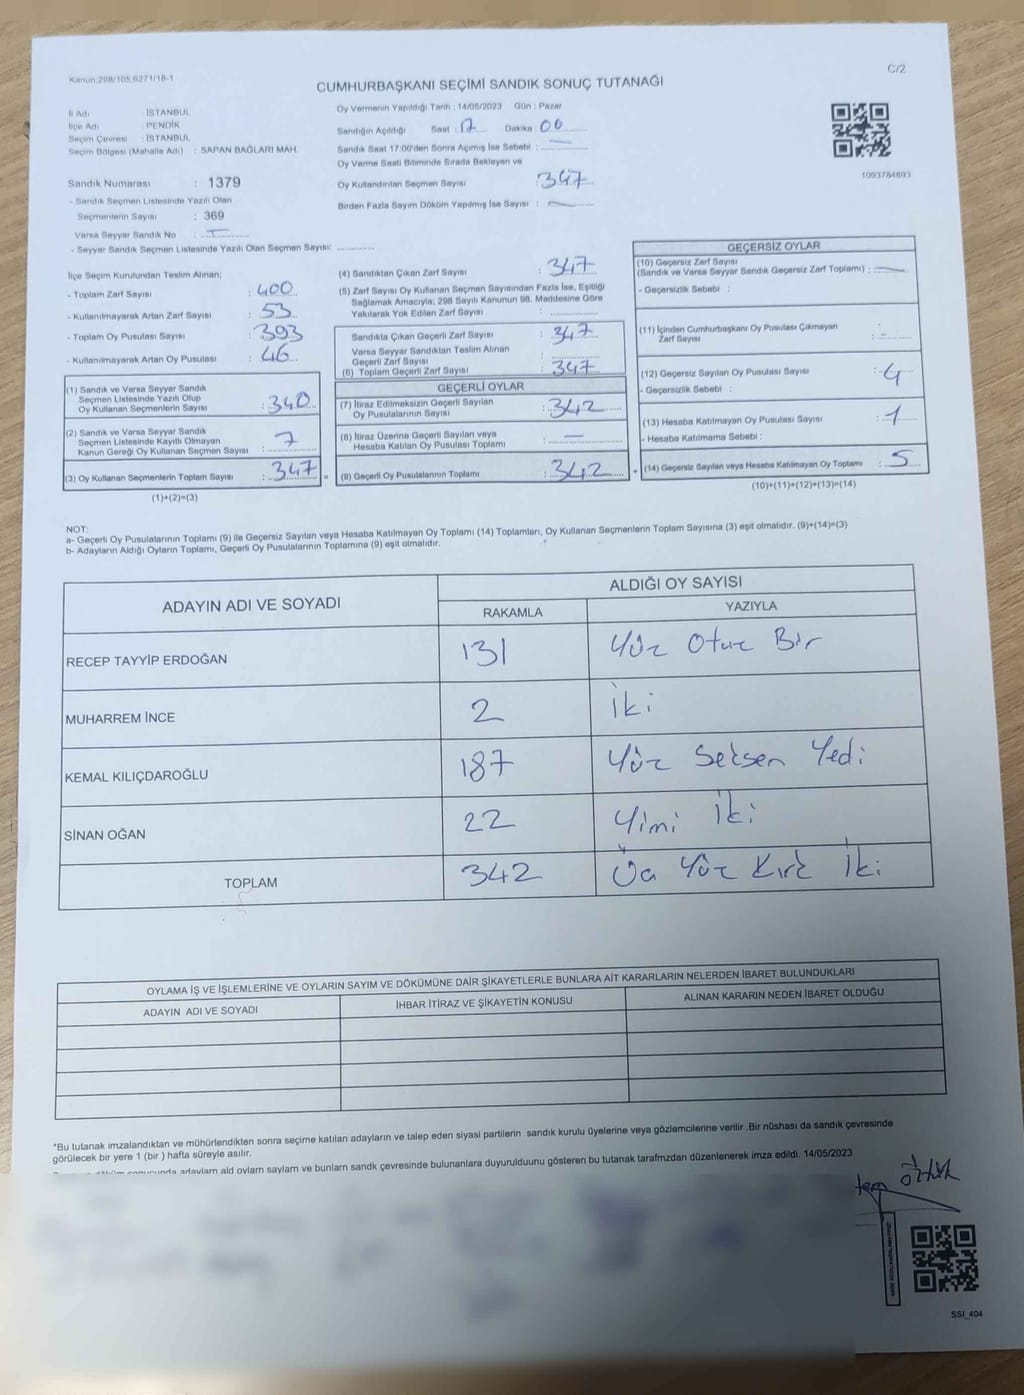 Kanun:298/105,6271/18-1
C/2
CUMHURBAŞKANI SEÇİMİ SANDIK SONUÇ TUTANAĞI
İl Adı : İSTANBUL
İlçe Adı : PENDİK
Seçim Çevresi : İSTANBUL
Seçim Bölgesi (Mahalle Adı) : SAPAN BAĞLARI MAH.
Sandık Numarası : 1379
- Sandık Seçmen Listesinde Yazılı Olan
Seçmenlerin Sayısı : 369
Varsa Seyyar Sandık No :
- Seyyar Sandık Seçmen Listesinde Yazılı Olan Seçmen Sayısı: ..............
Oy Vermenin Yapıldığı Tarih : 14/05/2023 Gün : Pazar
Sandığın Açıldığı Saat : 17 Dakika : 00
Sandık Saat 17:00'den Sonra Açılmış İse Sebebi : —
Oy Verme Saati Bitiminde Sırada Bekleyen ve
Oy Kullandırılan Seçmen Sayısı : 347
Birden Fazla Sayım Döküm Yapılmış İse Sayısı : —
1093784693
İlçe Seçim Kurulundan Teslim Alınan;
- Toplam Zarf Sayısı : 400
- Kullanılmayarak Artan Zarf Sayısı : 53
- Toplam Oy Pusulası Sayısı : 393
- Kullanılmayarak Artan Oy Pusulası : 46
(1) Sandık ve Varsa Seyyar Sandık
Seçmen Listesinde Yazılı Olup
Oy Kullanan Seçmenlerin Sayısı : 340
(2) Sandık ve Varsa Seyyar Sandık
Seçmen Listesinde Kayıtlı Olmayan
Kanun Gereği Oy Kullanan Seçmen Sayısı : 7
(3) Oy Kullanan Seçmenlerin Toplam Sayısı : 347 =
(1)+(2)=(3)
(4) Sandıktan Çıkan Zarf Sayısı : 347
(5) Zarf Sayısı Oy Kullanan Seçmen Sayısından Fazla İse, Eşitliği
Sağlamak Amacıyla; 298 Sayılı Kanunun 98. Maddesine Göre
Yakılarak Yok Edilen Zarf Sayısı : ..............
Sandıkta Çıkan Geçerli Zarf Sayısı : 347
Varsa Seyyar Sandıktan Teslim Alınan
Geçerli Zarf Sayısı : ..............
(6) Toplam Geçerli Zarf Sayısı : 347
GEÇERLİ OYLAR
(7) İtiraz Edilmeksizin Geçerli Sayılan
Oy Pusulalarının Sayısı : 342
(8) İtiraz Üzerine Geçerli Sayılan veya
Hesaba Katılan Oy Pusulası Toplamı : —
(9) Geçerli Oy Pusulalarının Toplamı : 342 +
GEÇERSİZ OYLAR
(10) Geçersiz Zarf Sayısı
(Sandık ve Varsa Seyyar Sandık Geçersiz Zarf Toplamı) : —
- Geçersizlik Sebebi :
(11) İçinden Cumhurbaşkanı Oy Pusulası Çıkmayan
Zarf Sayısı : -
(12) Geçersiz Sayılan Oy Pusulası Sayısı : 4
- Geçersizlik Sebebi :
(13) Hesaba Katılmayan Oy Pusulası Sayısı : 1
- Hesaba Katılmama Sebebi :
(14) Geçersiz Sayılan veya Hesaba Katılmayan Oy Toplamı : 5
(10)+(11)+(12)+(13)=(14)
NOT:
a- Geçerli Oy Pusulalarının Toplamı (9) ile Geçersiz Sayılan veya Hesaba Katılmayan Oy Toplamı (14) Toplamları, Oy Kullanan Seçmenlerin Toplam Sayısına (3) eşit olmalıdır. (9)+(14)=(3)
b- Adayların Aldığı Oyların Toplamı, Geçerli Oy Pusulalarının Toplamına (9) eşit olmalıdır.
ADAYIN ADI VE SOYADI
ALDIĞI OY SAYISI
RAKAMLA YAZIYLA
RECEP TAYYİP ERDOĞAN 131 Yüz Otuz Bir
MUHARREM İNCE 2 İki
KEMAL KILIÇDAROĞLU 187 Yüz Seksen Yedi
SİNAN OĞAN 22 Yimi İki
TOPLAM 342 Üç Yüz Kırk İki
OYLAMA İŞ VE İŞLEMLERİNE VE OYLARIN SAYIM VE DÖKÜMÜNE DAİR ŞİKAYETLERLE BUNLARA AİT KARARLARIN NELERDEN İBARET BULUNDUKLARI
ADAYIN ADI VE SOYADI İHBAR İTİRAZ VE ŞİKAYETİN KONUSU ALINAN KARARIN NEDEN İBARET OLDUĞU
*Bu tutanak imzalandıktan ve mühürlendikten sonra seçime katılan adayların ve talep eden siyasi partilerin sandık kurulu üyelerine veya gözlemcilerine verilir .Bir nüshası da sandık çevresinde
görülecek bir yere 1 (bir ) hafta süreyle asılır.
bu tutanak tarafmzdan düzenlenerek imza edildi. 14/05/2023
Öztürk
SSI_404